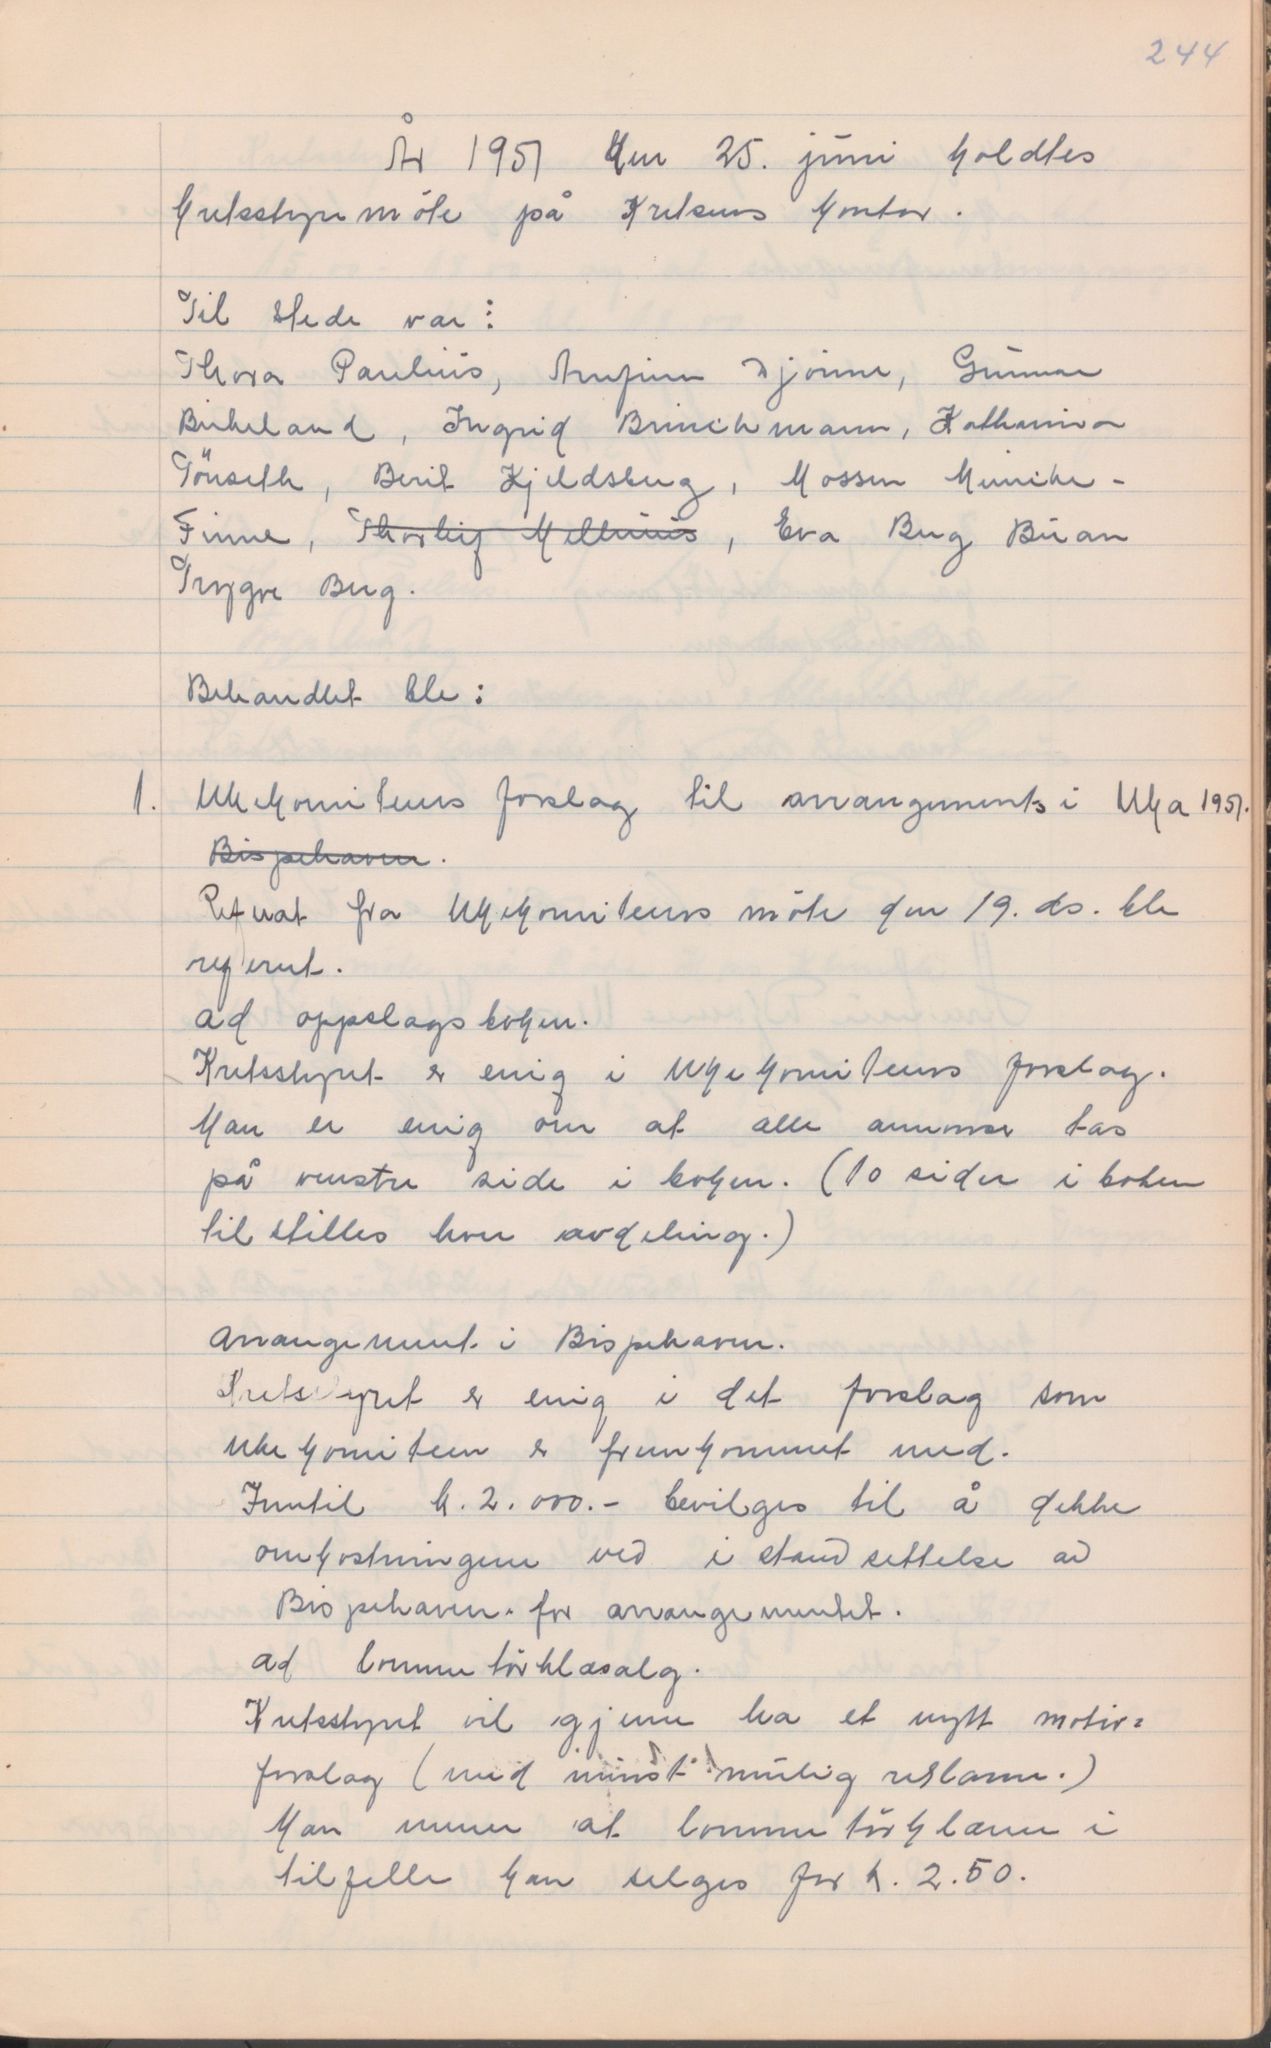 244
År 1951 den 25. juni holdtes
kretsstyremöte på Kretsens kontor.
Til stede var:
Thora Paulius, Arnfinn Djönne, Gunnar
Birkeland, Ingrid Brinchmann, Katharina
Tönseth, Berit Kjeldsberg, Mossen Münich-
Finne, Thorleif Mellenius, Eva Berg Buan
Trygve Berg.
Behandlet ble:
1. Ukekomiteens forslag til arrangements i Uka 1951.
Bispehaven.
Referat fra Ukekomiteens möte den 19. ds. ble
referert.
ad oppslagsboken.
Kretsstyret er enig i Ukekomiteens forslag.
Man er enig om at alle annonser tas
på venstre side i boken. (10 sider i boken
tilstilles hver avdeling.)
Arrangement i Bispehaven.
Kretsstyret er enig i det forslag som
Ukekomiteen er fremkommet med.
Inntil k. 2.000.- bevilges til å dekke
omkostningene ved istandsettelse av
Bispehaven for arrangementet.
ad lommetörklesalg.
Kretsstyret vil gjerne ha et nytt motiv=
forslag (med minst mulig reklame.)
Man mener at lommetörklærne i
tilfelle kan selges for k. 2.50.